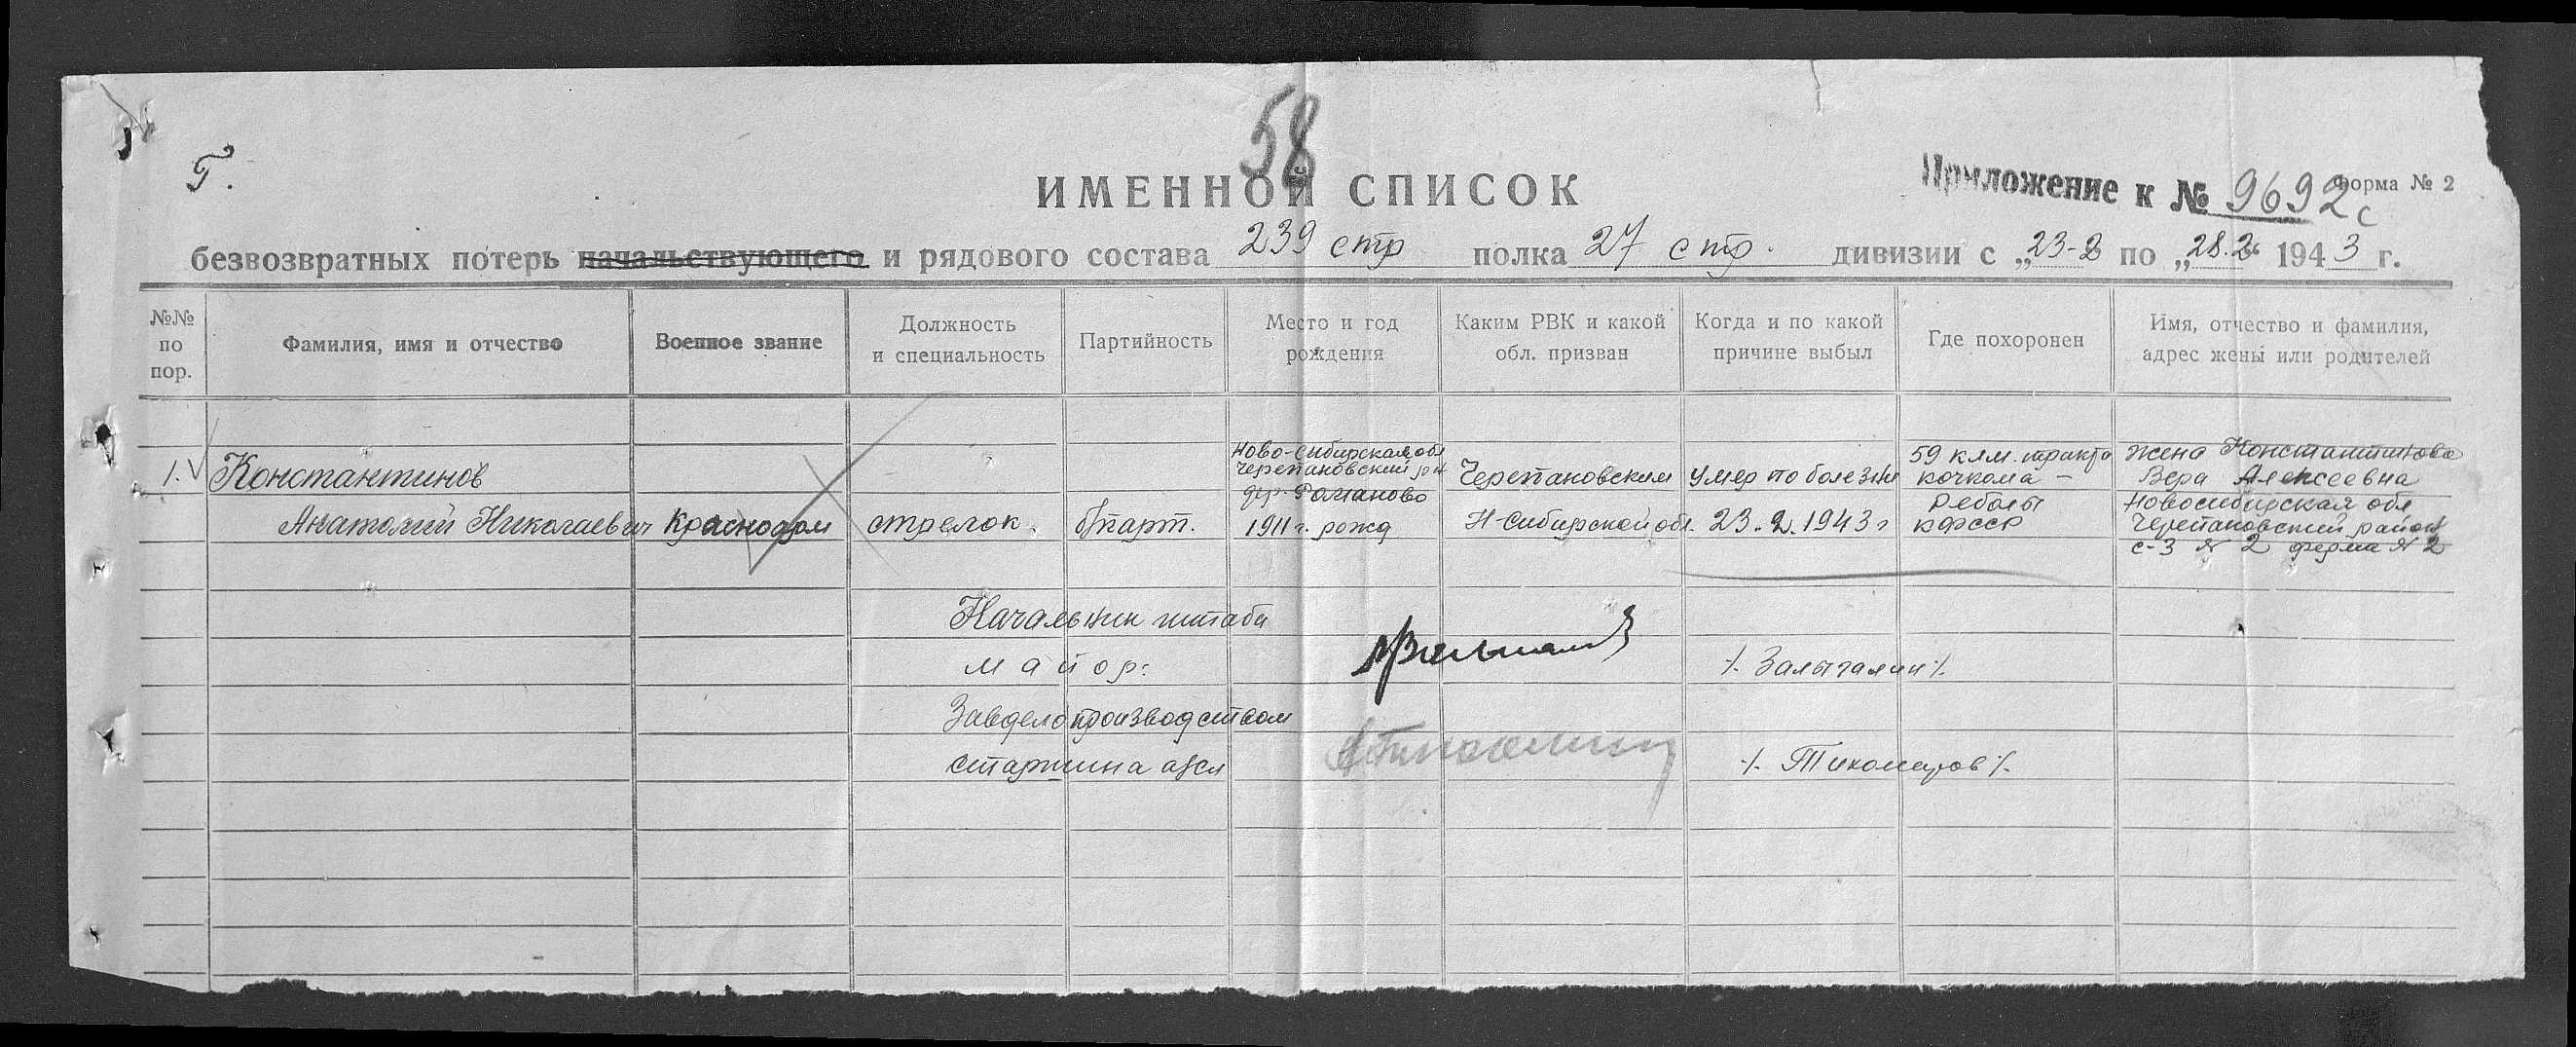 58
Г.
ИМЕННОЙ СПИСОК
Приложение к № 9692с
Форма № 2
безвозвратных потерь начальствующего и рядового состава 239 стр полка 27 стр. дивизии с „23-2 по „28.2“ 1943 г.
№№ по пор.
Фамилия, имя и отчество
Военное звание
Должность и специальность
Партийность
Место и год рождения
Каким РВК и какой обл. призван
Когда и по какой причине выбыл
Где похоронен
Имя, отчество и фамилия, адрес жены или родителей
1.
Константинов
Анатолий Николаевич
Красноарм
стрелок.
б/парт.
Ново-Сибирская обл
Черепановский р-н
дер. Романово
1911 г. рожд
Черепановским
Н-Сибирской обл.
Умер по болезни
23.2.1943 г
59 клм. тракта
кочкома -
Реболы
КФССР
жена Константинова
Вера Алексеевна
Новосибирская обл
Черепановский район
с-з № 2 ферма № 2
Начальник штаба
майор:
/. Залыгалин /.
Завделопроизводством
старшина а/сл
/. Тихомиров /.